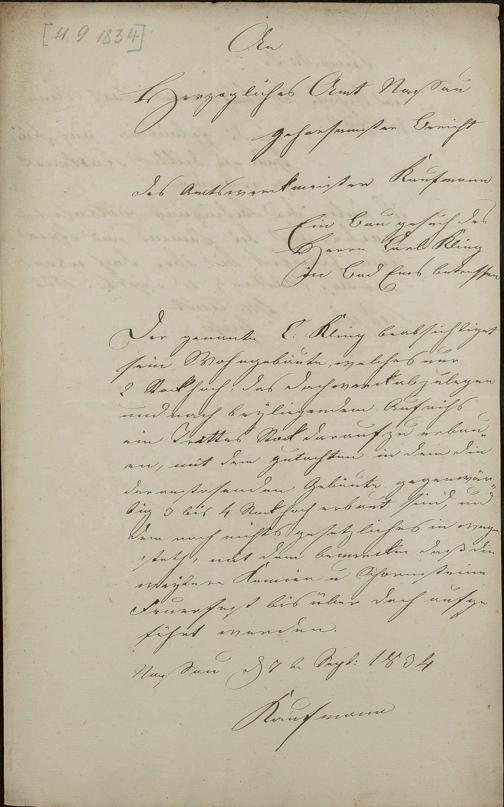 [11 9 1834]
An
Herzogliches Amt Nassau
gehorsamster Bericht
des Amtswerckmeister Kaufmann
Ein Baugesuch des
Herrn Carl Kling
In Bad Ems betreffen
Der genante C. Kling beabsichtiget
sein Wohngebäute, welches nur
2 Stockhoch, das Dachwerck abzulegen
und nach beyliegendem Aufriss
ein Trittes Stock darauf zu erbau-
en, mit dem gutachten in dem die
daranstosenden Gebäute gegenwär-
tig 3 bis 4 Stockhoch erbaut sind, und
dem noch nichts gesetzliches in wege
steth, mit dem bemercken daß die
Kamien u Schornsteine
Feuerfest bis über Dach aufge
führt werden.
Nassau d 7 Sept. 1834
Kaufmann